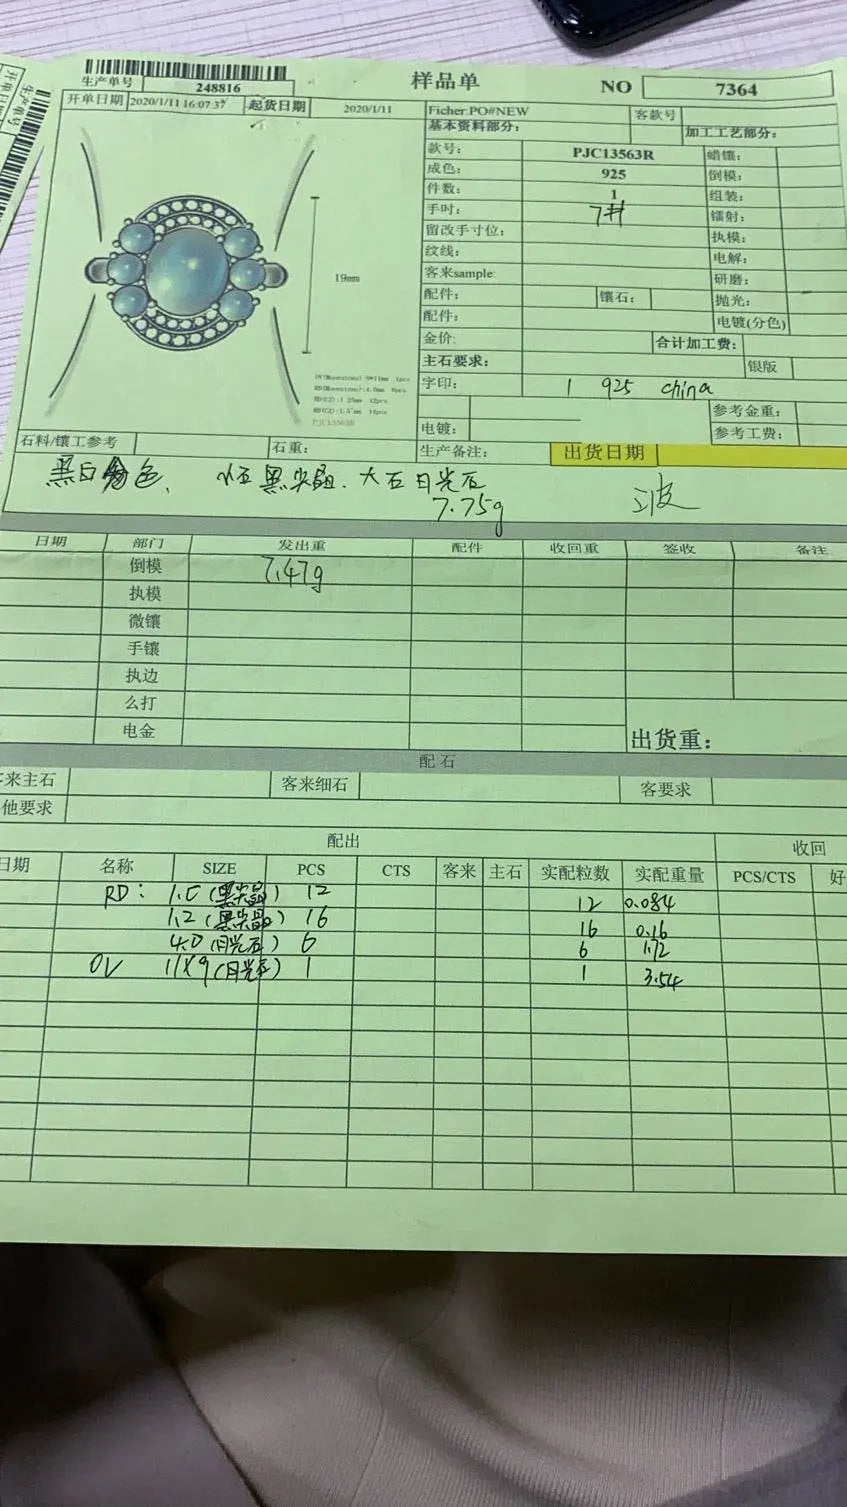 生产单号 248816 样品单 NO 7364
开单日期 2020/1/11 16:07:37 起货日期 2020/1/11 Ficher.PO#NEW 客款号
基本资料部分: 加工工艺部分:
款号: PJC13563R 蜡镶:
成色: 925 倒模:
件数: 1 组装:
手吋: 7# 镭射:
留改手寸位: 执模:
纹线: 电解:
客来sample: 研磨:
配件: 镶石: 抛光:
配件: 电镀(分色)
金价: 合计加工费:
主石要求: 银版
字印: 1 925 china
参考金重:
电镀: 参考工费:
19mm
PJC13563R
石料/镶工参考 石重: 生产备注: 出货日期
黑白分色、 小石黑尖晶、大石月光石
7.75g 波
日期 部门 发出重 配件 收回重 签收 备注
倒模 7.47g
执模
微镶
手镶
执边
么打
电金 出货重:
配石
客来主石 客来细石 客要求
他要求
配出 收回
日期 名称 SIZE PCS CTS 客来 主石 实配粒数 实配重量 PCS/CTS 好
RD: 1.0 (黑尖晶) 12 12 0.084
1.2 (黑尖晶) 16 16 0.16
4.0 (月光石) 6 6 1.72
OV 11X9 (月光石) 1 1 3.54